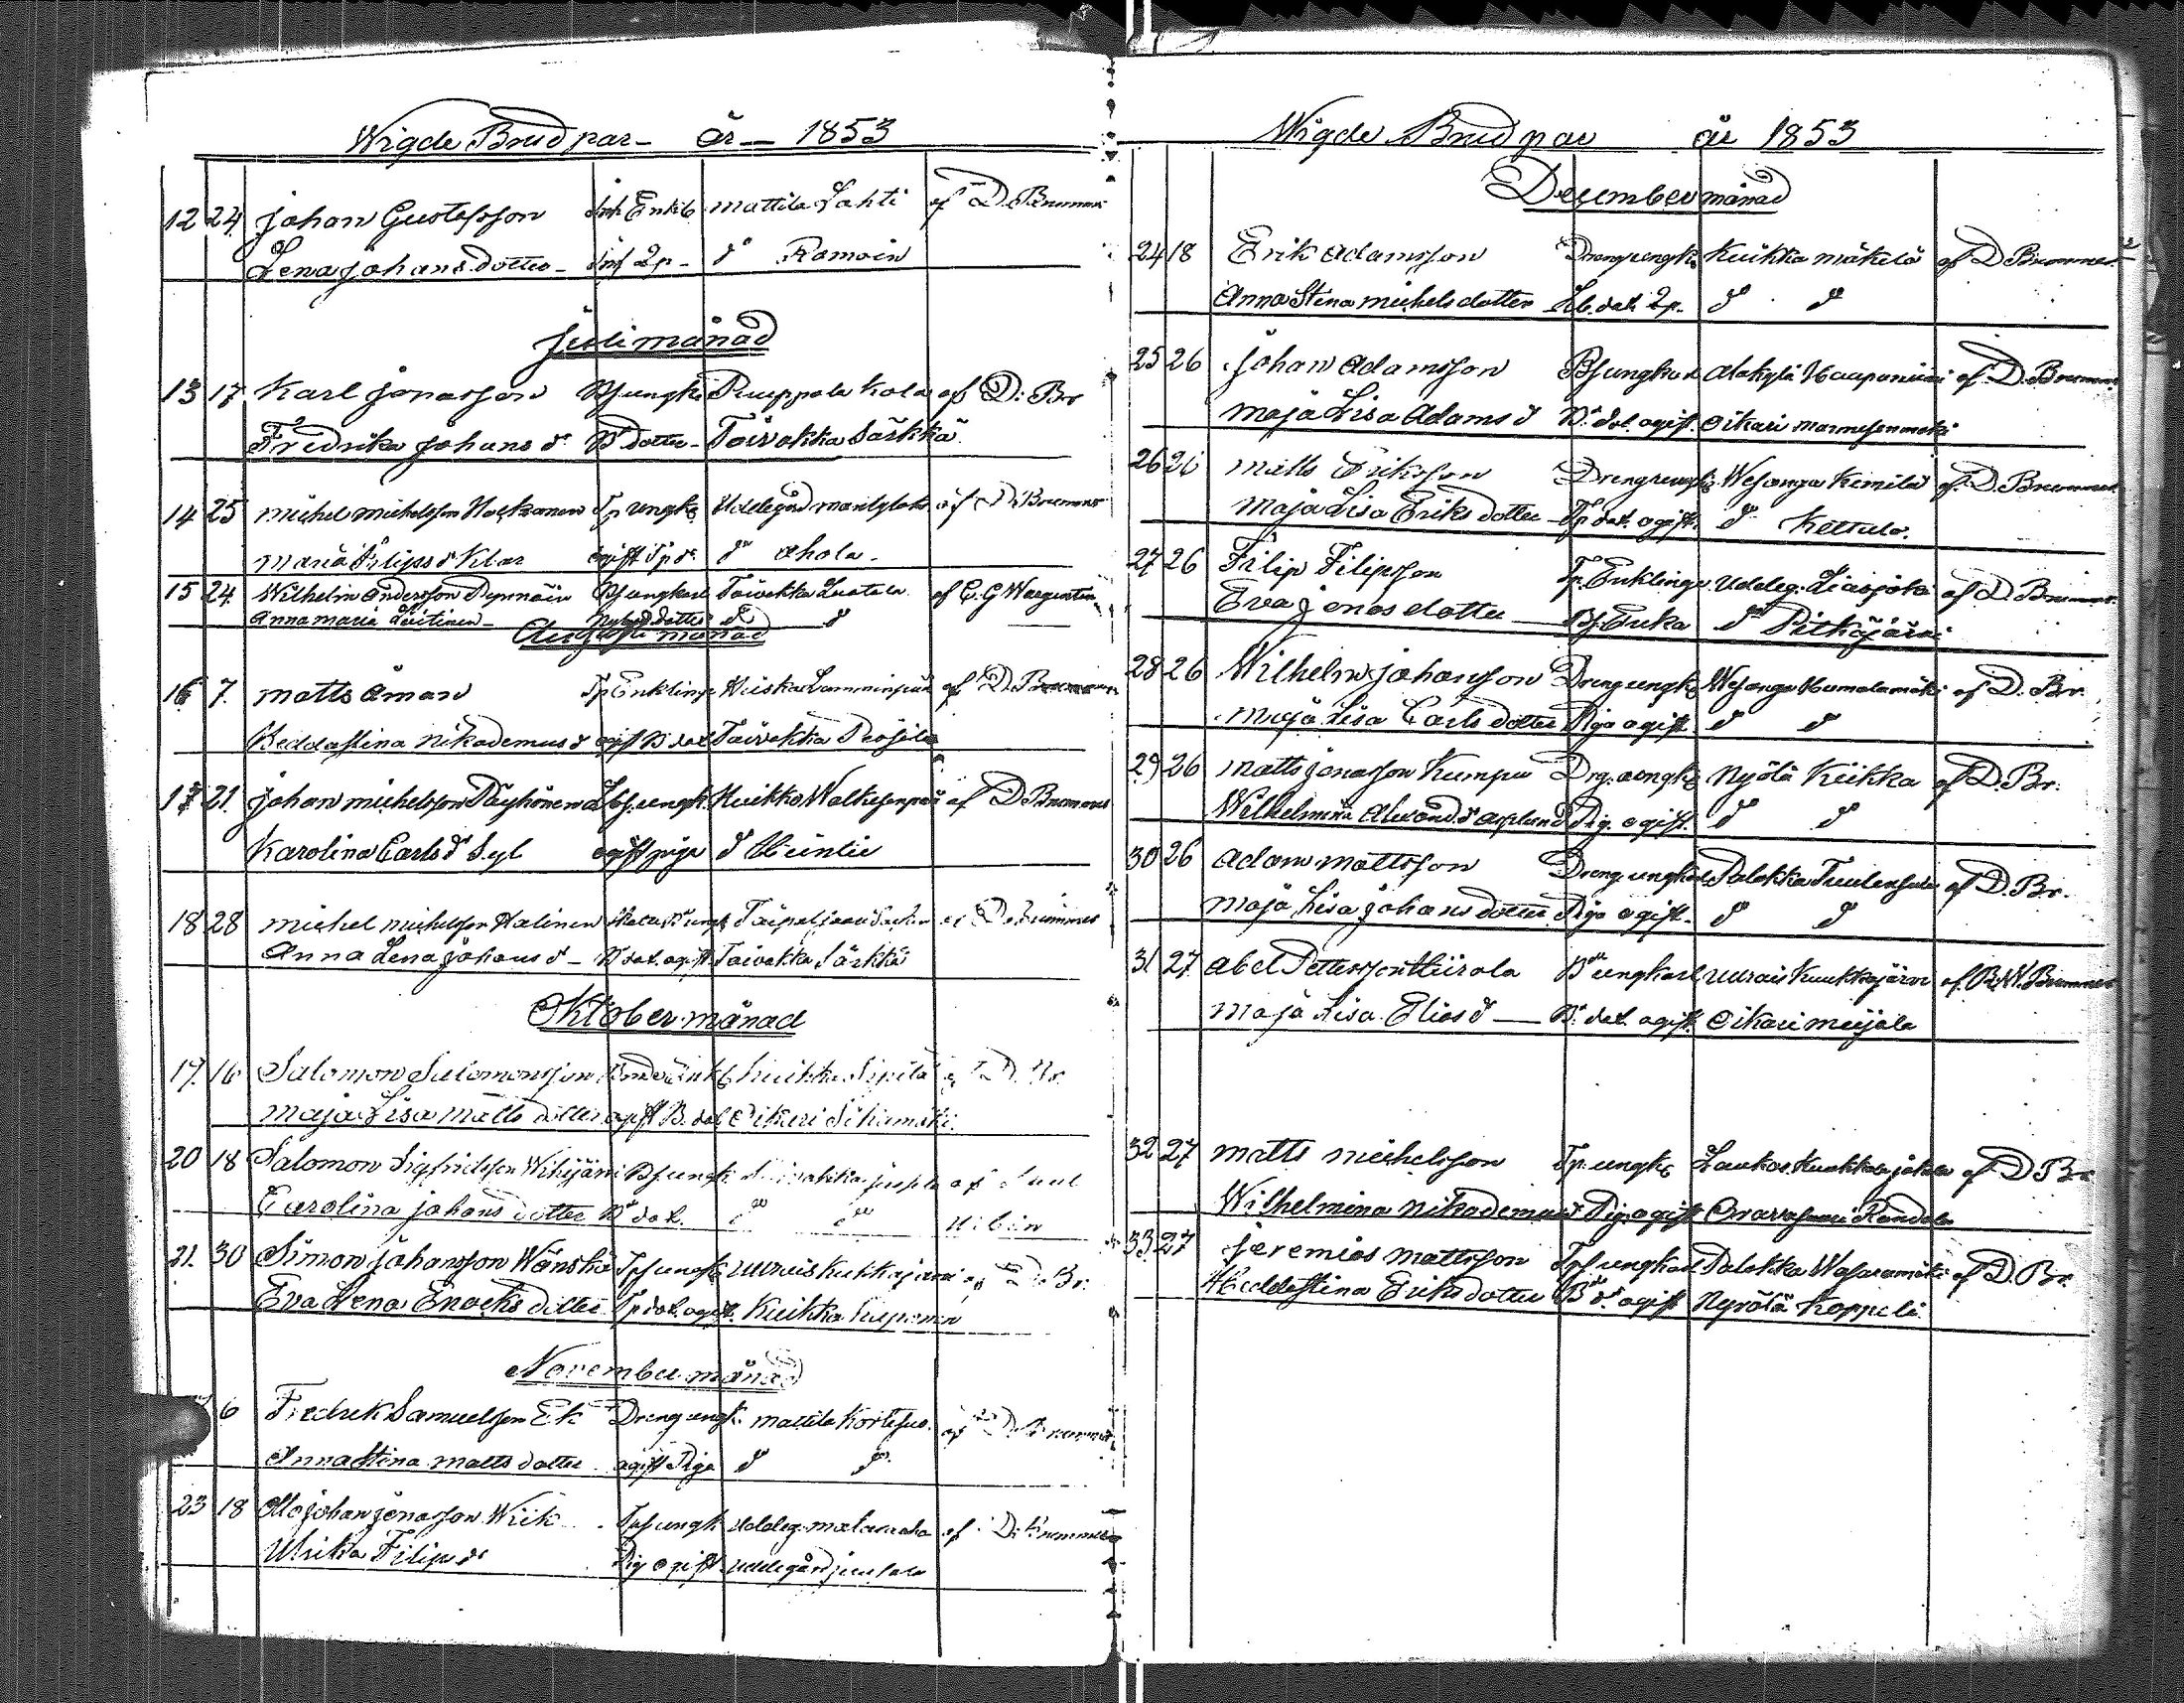 Wigde Brudpar - år - 1853
12 24 Johan Gustafsson Enkl. Mattila Lahti af D. Brummer
Lena Johans dotter - Inh 2p - d° Ramoin
Juli månad
13 17 Karl Jonasson Bs ungk. Ruuppola Kola af D: Br
Fredrika Johans d. Bd dotter - Toivakka Särkkä
14 25 Michel Michelsson Hackanen Tp ungk. Uddegård Mantylaks af D. Brummer
Maria Filips d Klar ogift Tp d. d° Ahola -
15 24 Wilhelm Andersson Bs ungkarl Toivakka Luotola af C. G Wargentin
Anna Maria - Nyb. dotter d° d°
Augusti månad
16 7. Matts Åman Tp Enkling Lamminpää af D. Brummer
Heddastina Nikodemus d ogift B dot Toivakka
17 21. Johan Michelsson Päyhönen ungk. Kuikka Walkesenpää af D. Brummer
Karolina Carls d Syl ogift piga d° Heintie
18 28 Michel Michelsson Halinen ungk af D. Brummer
Anna Lena Johans d - B dot. ogift. Toivakka Särkkä
Oktober månad
19. 16 Salomon Salomonsson Kuikka Sipilä af D. Br.
Maja Lisa Matts dotter ogift B. dot Oikari Sikamäki.
20 18 Salomon Sigfridsson Bs ungk. af
Carolina Johans dotter Bd dot. d° d°
21. 30 Simon Johansson Wänskä Tps ungk Uurais Kukkajärvi af D. Br.
Eva Lena Enocks dotter Tp dot. ogift. Kuikka
November månad
6 Fredrik Samuelsson Ek Dreng ungk. Mattila Kortesuo. af D. Brummer
Annastina Matts dotter ogift Piga d° d°
23 18 Otto Johan Jonasson Wiik Tps ungk Uddeg. af D. Brummer
Ulrika Filips d° Pig ogift Uddegård Juutola
Wigde Brudpar år 1853
December månad
24 18 Erik Adamsson Dreng ungk. Kuikka Mäkelä af D Brummer.
Anna Stina Michels dotter dot. 2p. d° d°
25 26 Johan Adamsson Bs ungkarl Alakylä af D. Brummer
Maja Lisa Adams d Bd. dot. ogift. Oikari
26 26 Matts Eriksson Dreng ungk. Wesanga Kimilä af D. Brummer
Maja Lisa Eriks dotter - Tp dot. ogift. d° Kettula.
27 26 Filip Filipsson Tp. Enkling Uddeg. af D. Brummer.
Eva Jonas dotter Bs. Enka d° Pitkäjärvi
28 26 Wilhelm Johansson Dreng ungk. Wesanga Humalamäki af D. Br.
Maja Lisa Carls dotter Piga ogift. d° d°
29 26 Matts Jonasson Kumpu Drg. ungk. Nyölä Kiikka af D. Br.
Wilhelmina Alexand. d Asplund Pig. ogift. d° d°
30 26 Adam Mattsson Dreng ungkarl Palokka af D. Br.
Maja Lisa Johans dotter Piga ogift. d° d°
31 27. Abel Pettersson Hiirola Bd ungkarl Uurais Kuukkajärvi af R. W. Brummer
Maja Lisa Elias d - Bd. dot. ogift. Oikari Meijala
32 27 Matts Michelsson Tp. ungk. Laukas Kuukkala af D Br
Wilhelmina Nikodemus d Pig. ogift Oravasaari Randala
33. 27 Jeremias Mattsson Tps ungkarl Palokka Wasaramäki af D. Br.
Heddastina Eriks dotter Bd d. ogift Nyrölä Koppeli